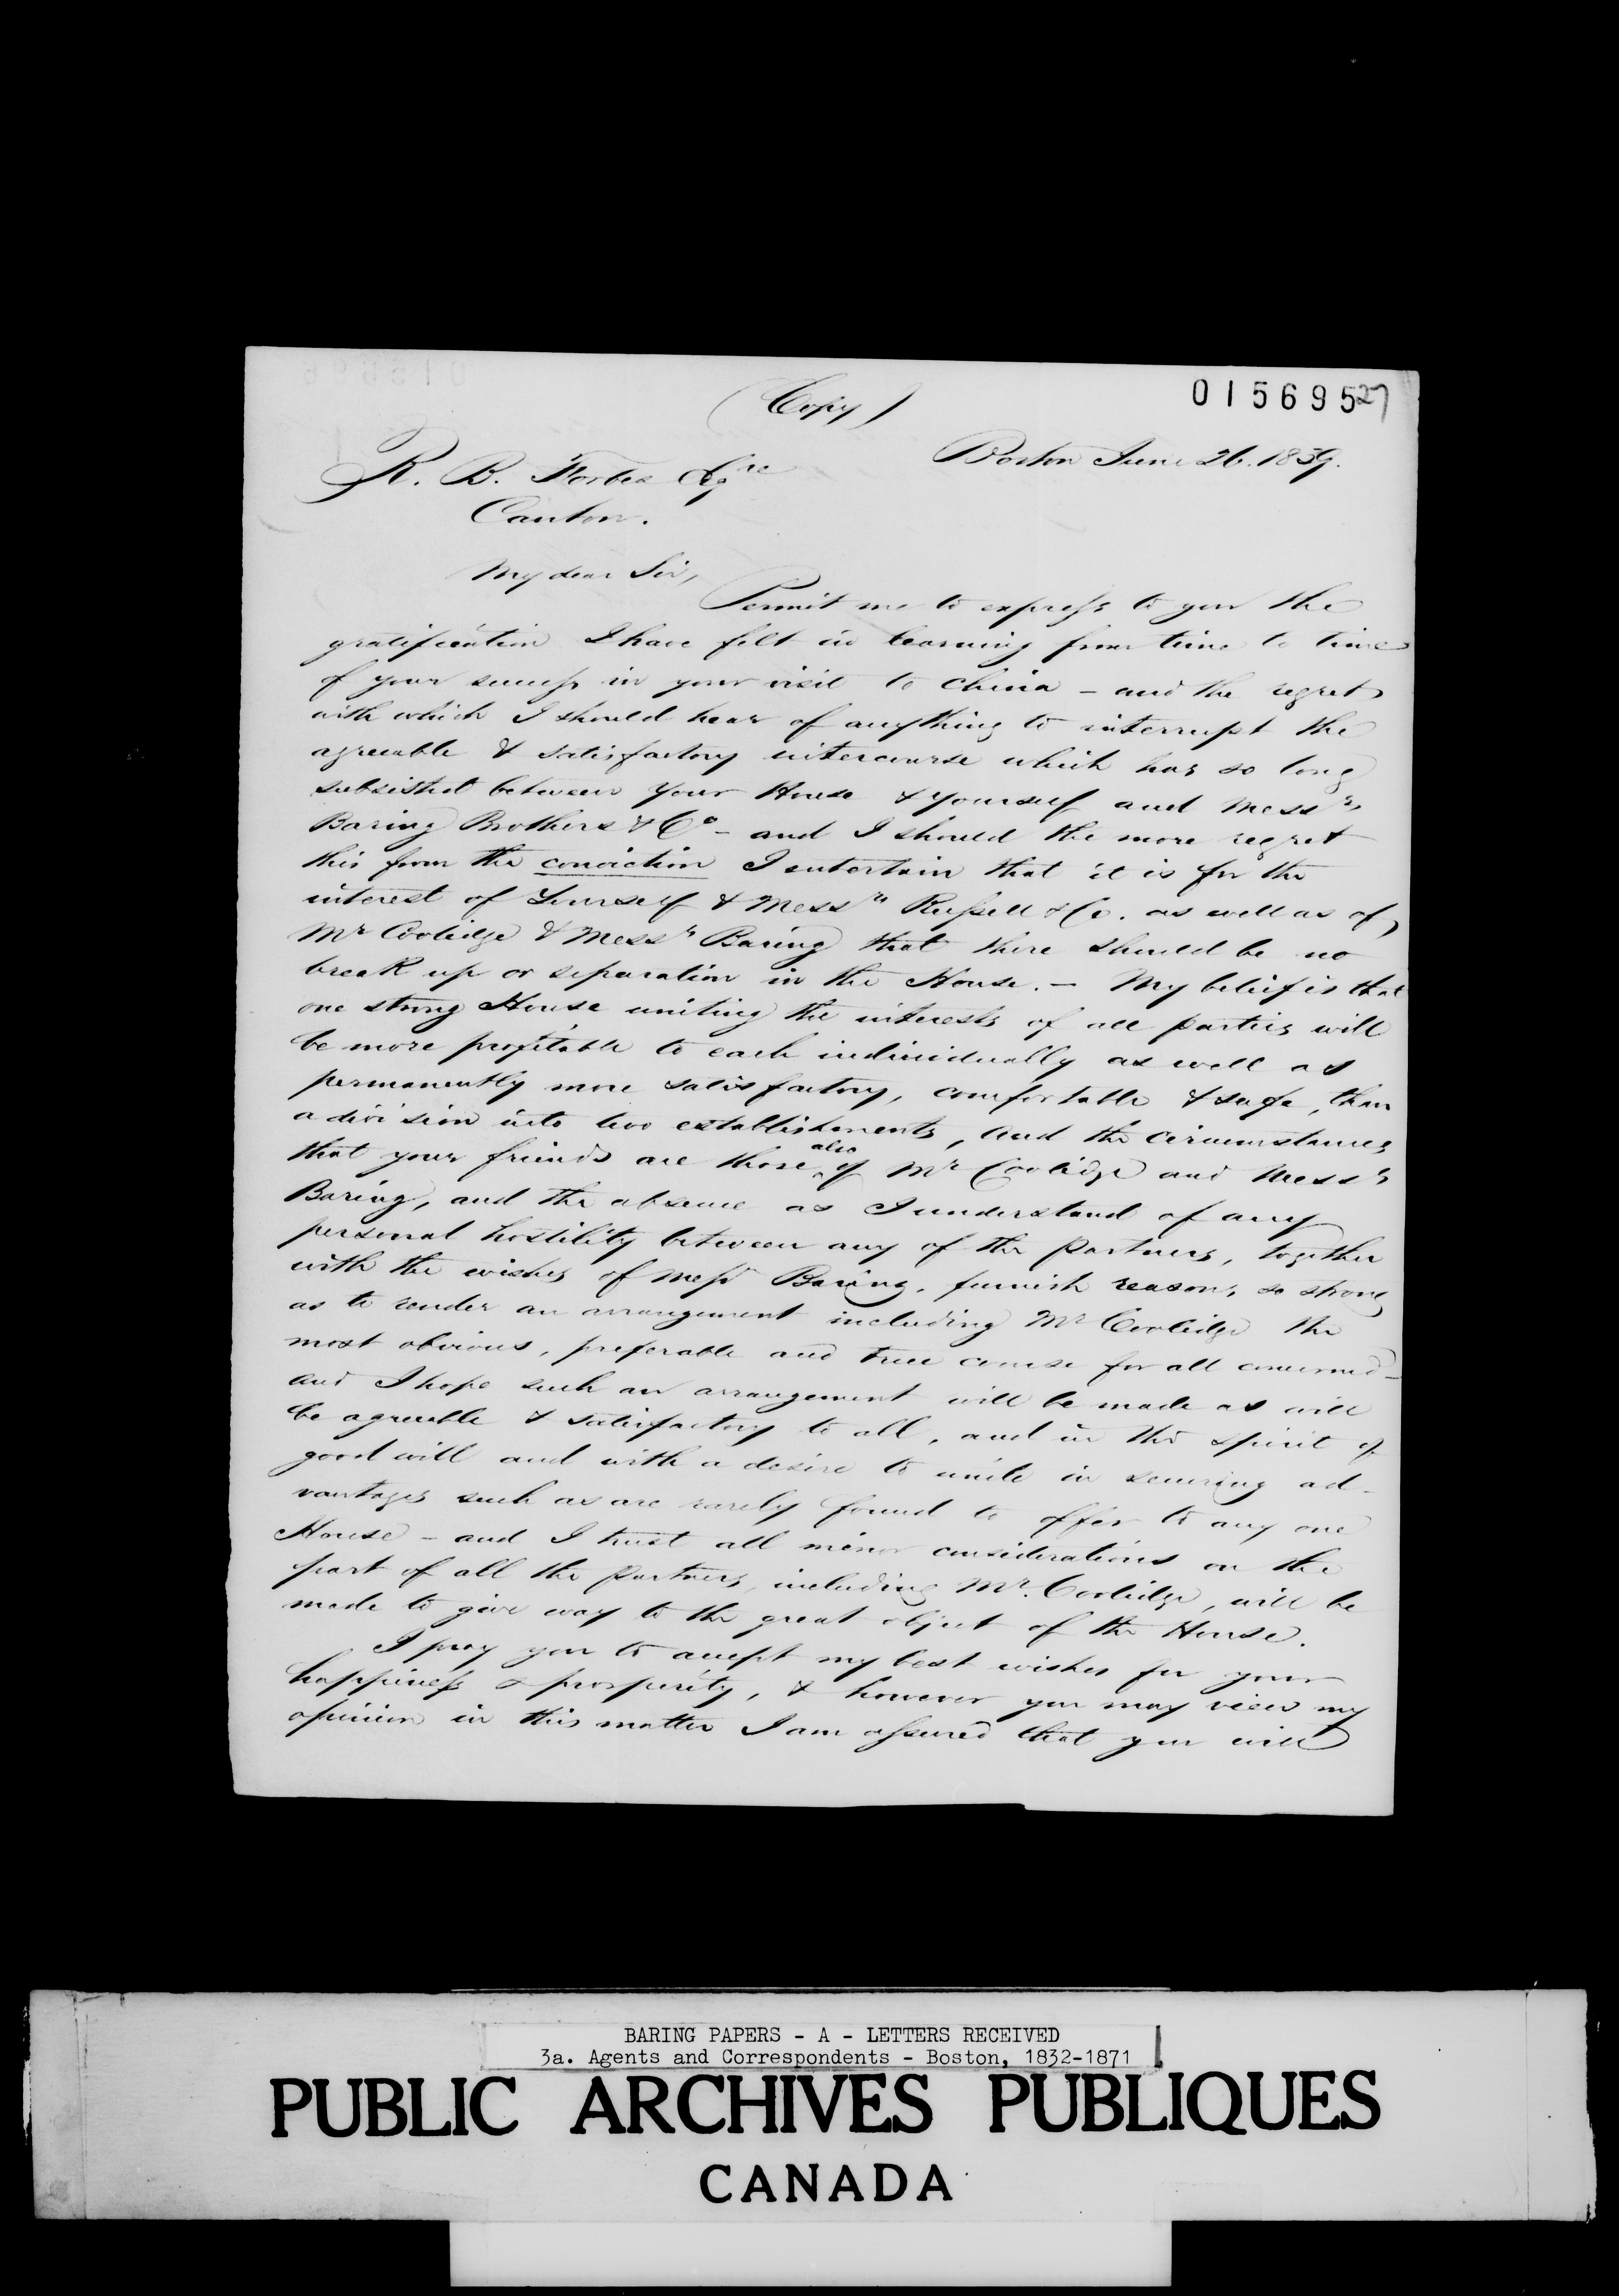 (Copy)
01569527
Boston June 26. 1839.
R. B. Forbes Esqre
Canton.
My dear Sir,
Permit me to express to you the
gratification I have felt in learning from time to time
of your success in your visit to China – and the regret
with which I should hear of anything to interrupt the
agreeable & satisfactory intercourse which has so long
subsisted between your House & yourself and Messrs
Baring Brothers & Co – and I should the more regret
this from the conviction I entertain that it is for the
interest of Yourself & Messrs Russell & Co. as well as of
Mr Coolidge & Messrs Baring that there should be no
break up or separation in the House. – My belief is that
one strong House uniting the interests of all parties will
be more profitable to each individually as well as
permanently more satisfactory, comfortable & safe, than
a division into two establishments, and the circumstances
that your friends are those also of Mr Coolidge and Messrs
Baring, and the absence as I understand of any
personal hostility between any of the partners, together
with the wishes of Messrs Baring, furnish reasons so strong
as to render an arrangement including Mr Coolidge the
most obvious, preferable and true course for all concerned –
and I hope such an arrangement will be made as will
be agreeable & satisfactory to all, and in the spirit of
good will and with a desire to unite in securing ad-
vantages such as are rarely found to offer to any one
House – and I trust all minor considerations on the
part of all the partners, including Mr. Coolidge, will be
made to give way to the great object of the House.
I pray you to accept my best wishes for your
happiness & prosperity, & however you may view my
opinion in this matter I am assured that you will
BARING PAPERS - A - LETTERS RECEIVED
3a. Agents and Correspondents - Boston, 1832-1871
PUBLIC ARCHIVES PUBLIQUES
CANADA